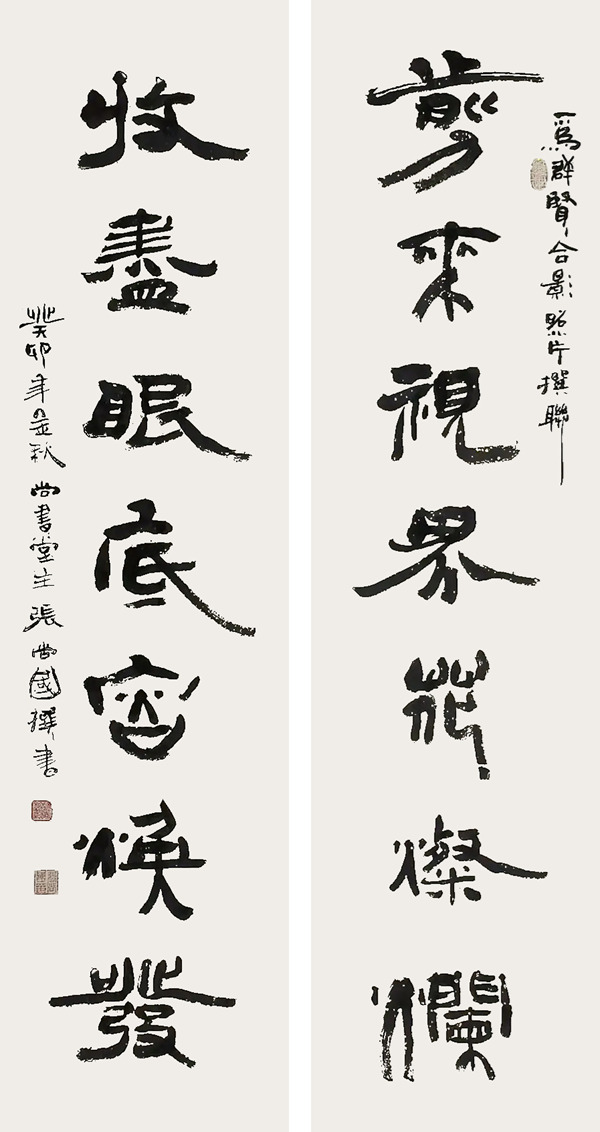 為群賢合影照片撰聯
剪來視界花燦爛
收盡眼底容煥發
癸卯年金秋尚書堂主張尚國撰書